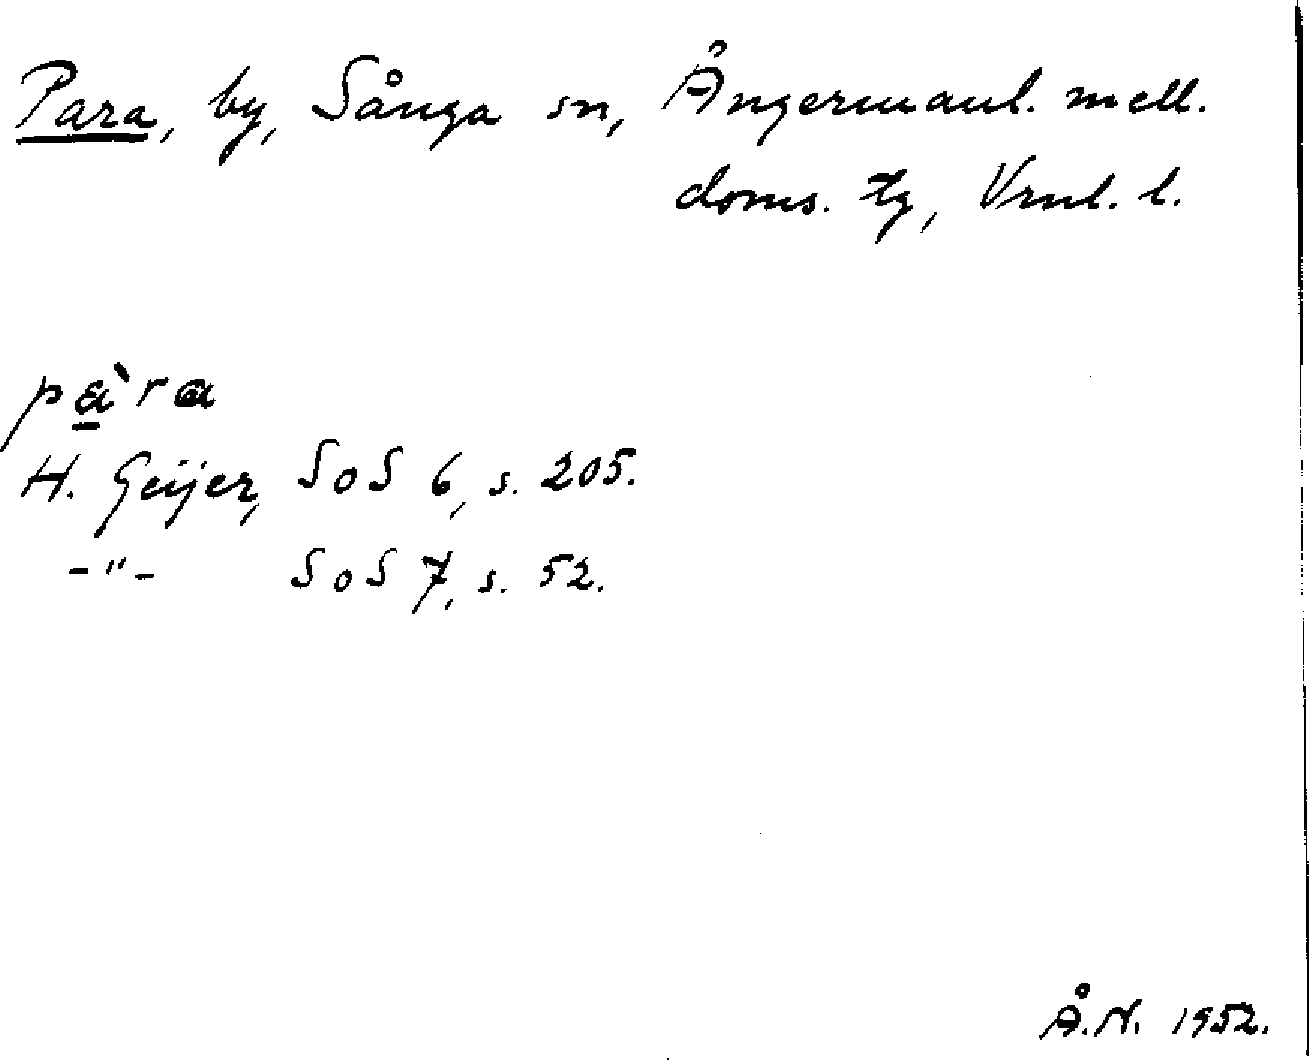 Para, by, Sånga sn, Ångermanl. mell.
doms. tg, Vrnl. l.
pa̱`ra
H. Geijer, SoS 6, s. 205.
-"- SoS 7, s. 52.
Å.N. 1952.